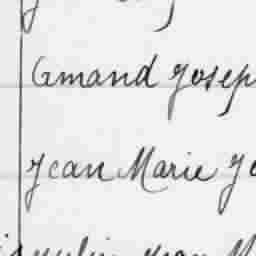 Amand Josep
Jean Marie Je